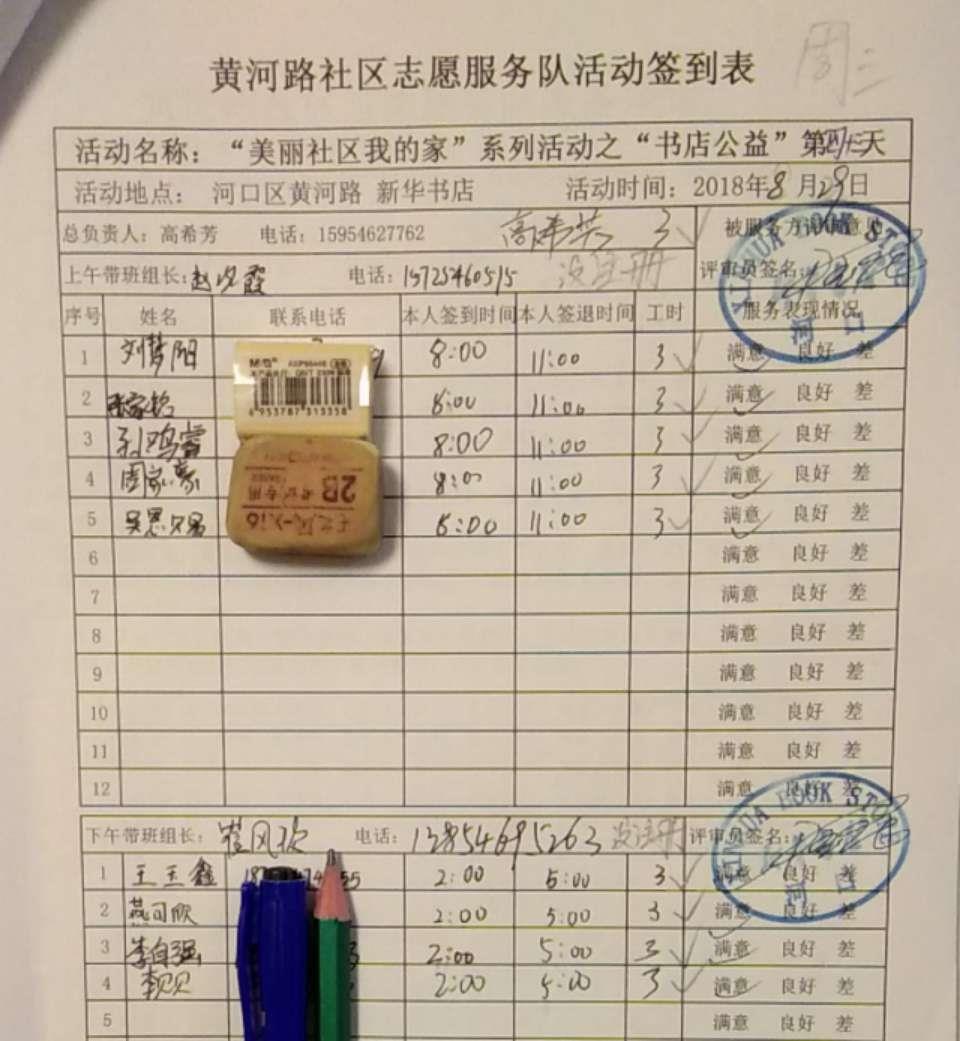 周三
黄河路社区志愿服务队活动签到表
活动名称：“美丽社区我的家”系列活动之“书店公益”第 天
活动地点： 河口区黄河路 新华书店 活动时间：2018年8月29日
总负责人：高希芳 电话：15954627762 高希芳 3 被服务方 意
上午带班组长： 电话：15725460515 没注册 评审员签名：
序号 姓名 联系电话 本人签到时间 本人签退时间 工时 服务表现情况
1 刘梦阳 8:00 11:00 3 满意 良好 差
2 8:00 11:00 3 满意 良好 差
3 8:00 11:00 3 满意 良好 差
4 周家豪 8:00 11:00 3 满意 良好 差
5 8:00 11:00 3 满意 良好 差
6 满意 良好 差
7 满意 良好 差
8 满意 良好 差
9 满意 良好 差
10 满意 良好 差
11 满意 良好 差
12 满意 良好 差
下午带班组长： 电话：13854695263 没注册 评审员签名：
1 王 鑫 2:00 5:00 3 满意 良好 差
2 燕可欣 2:00 5:00 3 满意 良好 差
3 李自强 2:00 5:00 3 满意 良好 差
4 李贝贝 2:00 5:00 3 满意 良好 差
5 满意 良好 差
M&G
6 953787 313358
2B 考试专用
XINHUA BOOK STORE
河口
XINHUA BOOK STORE
河口